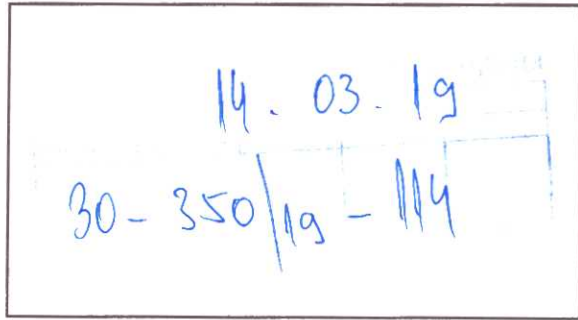 14. 03. 19
30- 350/19 - 114